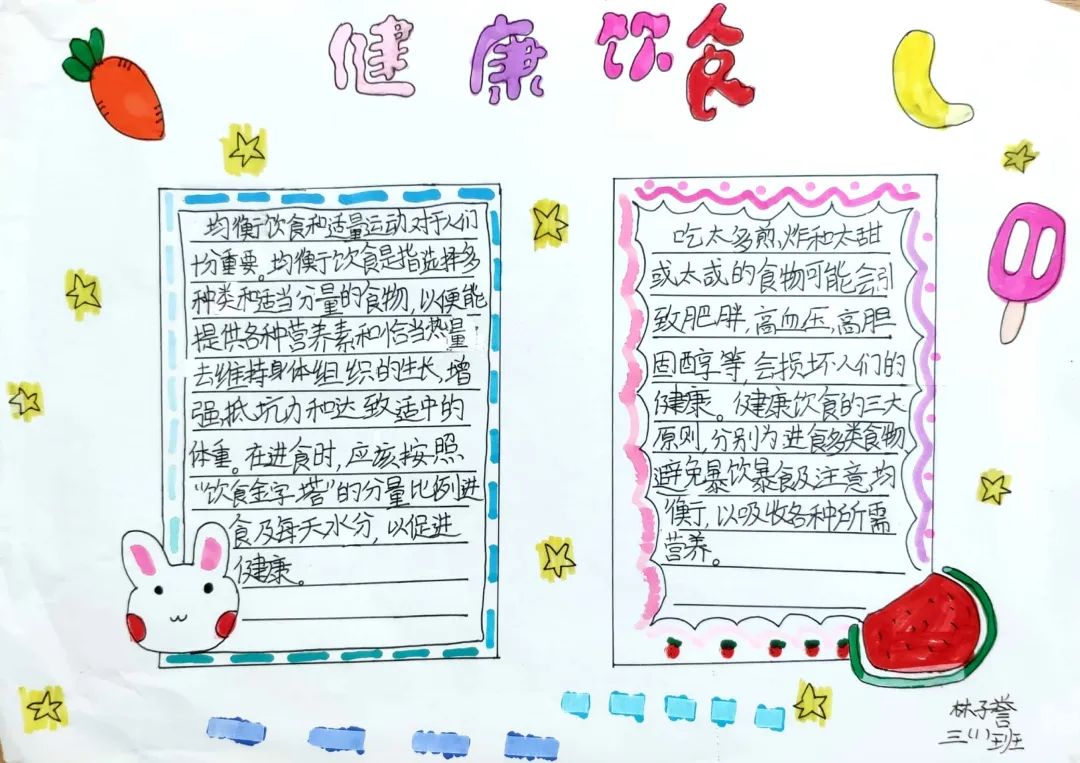 健康饮食
均衡饮食和适量运动对于人们
十分重要。均衡饮食是指选择多
种类和适当分量的食物,以便能
提供各种营养素和恰当热量
去维持身体组织的生长,增
强抵抗力和达致适中的
体重。在进食时,应该按照
“饮食金字塔”的分量比例进
食及每天水分,以促进
健康。
吃太多煎,炸和太甜
或太咸的食物可能会引
致肥胖,高血压,高胆
固醇等,会损坏人们的
健康。健康饮食的三大
原则,分别为进食多类食物,
避免暴饮暴食及注意均
衡,以吸收各种所需
营养。
林子誉
三(1)班